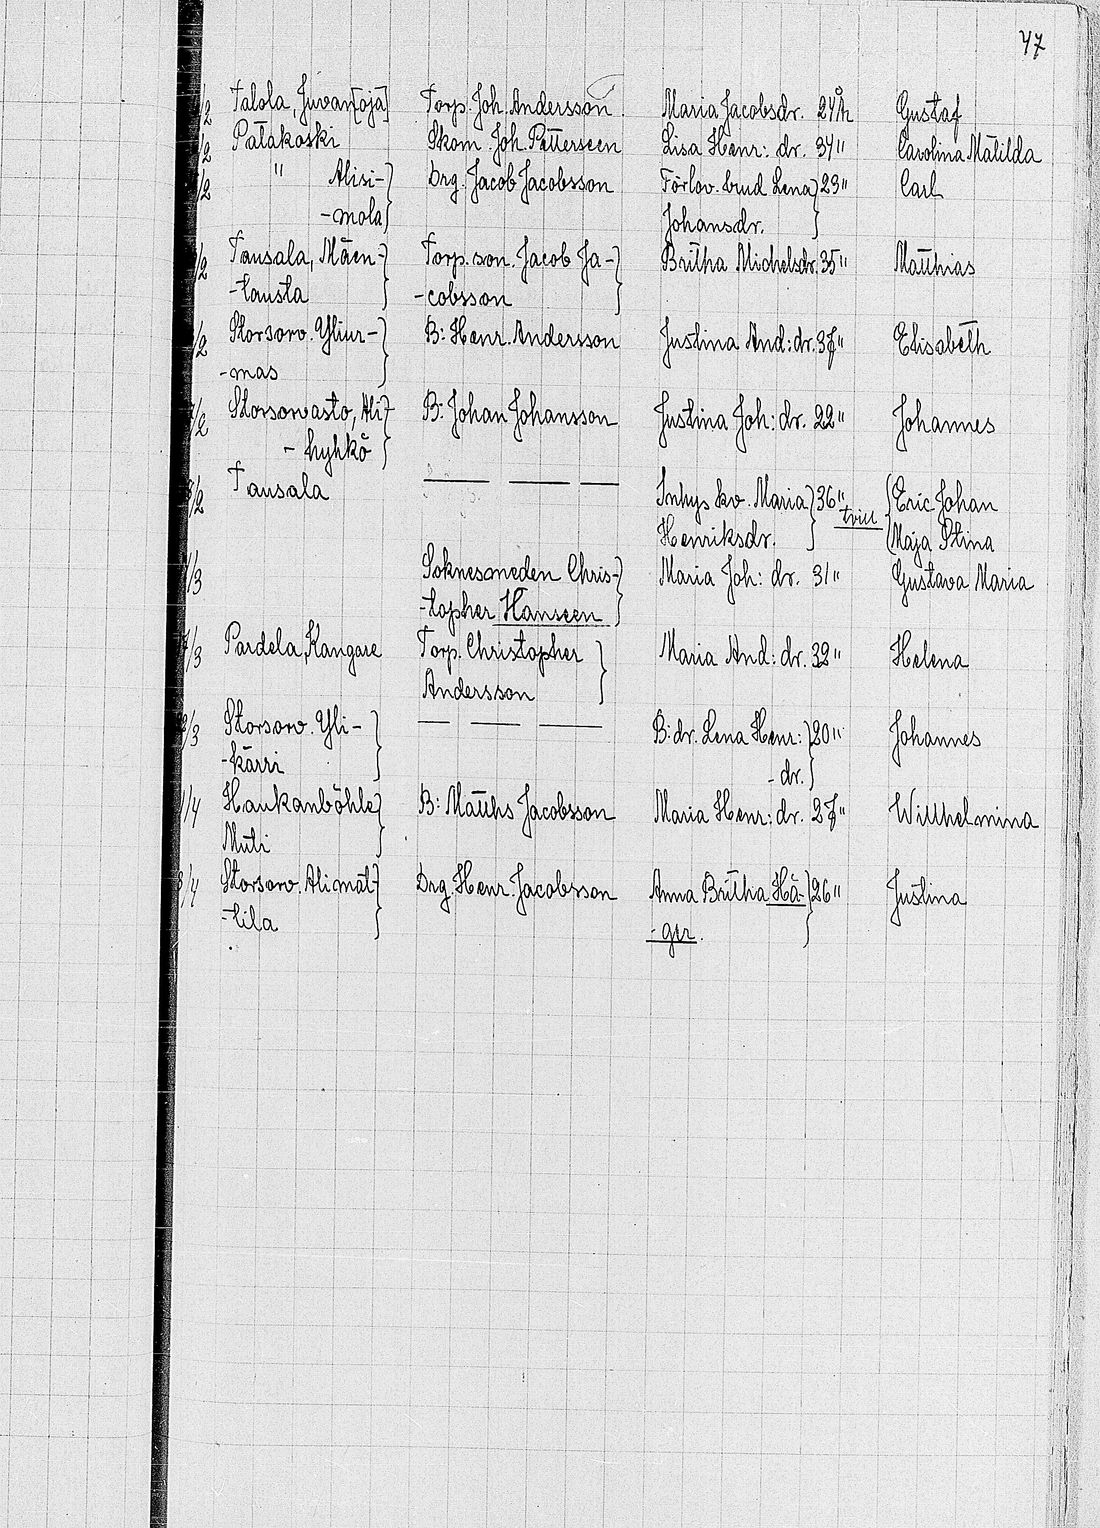 47
/2 Talola, Juvan[oja] Torp. Joh. Andersson. Maria Jacobsdr. 24 åh Gustaf
/2 Palakoski Skom. Joh. Petterseen Lisa Henr: dr. 34" Carolina Matilda
/2 " Alisi-} Drg. Jacob Jacobsson Förlov. brud Lena} 23" Carl
-mola} Johansdr.
/2 Tausala, Mäen-} Torp. son. Jacob Ja-} Britha Michelsdr. 35" Matthias
-tausta -cobsson
/2 Storsorv. Yliur-} B: Henr. Andersson Justina And: dr. 37" Elisabeth
-mas
/2 Storsorvasto, Ali-} B: Johan Johansson Justina Joh: dr. 22" Johannes
-hyhkö
/2 Tausala — — — Inhys kv. Maria} 36" tvill {Eric Johan
Henriksdr. {Maja Stina
/3 Soknesmeden Chris-} Maria Joh: dr. 31" Gustava Maria
-topher Hanseen
/3 Pardela, Kangare Torp. Christopher} Maria And: dr. 32" Helena
Andersson
/3 Storsorv. Yli-} — — — B: dr. Lena Henr:} 20" Johannes
-kärri -dr.
1/4 Haukanböhle} B: Matths Jacobsson Maria Henr: dr. 27" Willhelmina
Muti
/4 Storsorv. Alimat-} Drg. Henr. Jacobsson Anna Britha Hä-} 26" Justina
-tila -ger.